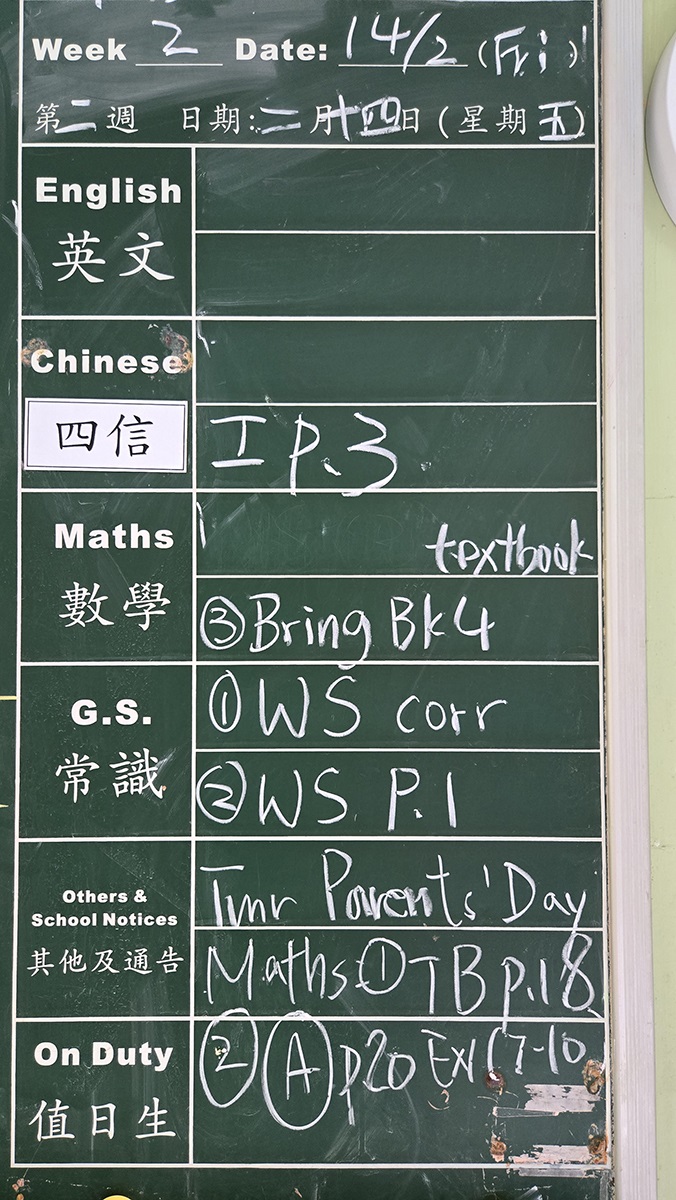 Week 2 Date: 14/2 (Fri)
第二週 日期:二月十四日(星期五)
English
英文
Chinese
四信
工 P.3
Maths
textbook
數學
③Bring Bk4
G.S.
①WS corr
常識
②WS P.1
Others &
School Notices
Tmr Parents' Day
其他及通告
Maths:①TB p.18
On Duty
②Ⓐp20 Ex1(7-10
值日生